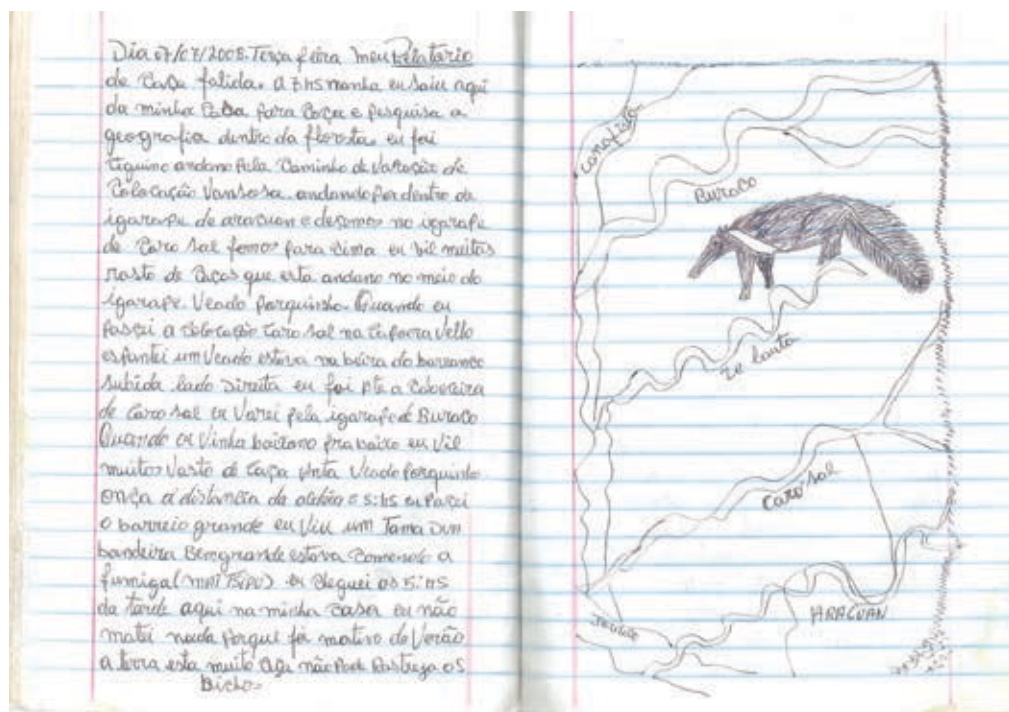 Dia 07/07/2008. Terça feira meu Relatorio
de Caça falida. a 7:hs manha eu saiu aqui
da minha Casa para Caça e pesquisa a
geografia dentro da floresta, eu foi
andano pela Caminho de Varação de
Colocação andando por dentro de
igarape de aracuan e desemos no igarape
de Caro sal femos para cima eu vil muitas
rasto de Caças que esta andano no meio do
igarape. Veado porquinho. Quando eu
Passei a colocação Caro sal na Capoera Vello
espantei um Veado estava na beira do barranco
subida lado direita eu foi ate a Cabeceira
de Caro sal eu Varei pela igarape de Buraco
Quando eu Vinha baixano pra baixo eu Vil
muitos rasto de Caça Veado porquinho
onça a distancia da aldeia o 5:hs eu Pasei
o barreio grande eu Viu um Tama Dun
bandeira Bem grande estava Comendo a
fumiga ( ) eu cheguei as 5:hs
da tarde aqui na minha casa eu não
matei nada porque foi motivo do Verão
a terra esta muito não Pode Rastreja os
Bichos
Canafista
Buraco
Ze Lauta
Caro sal
ARACUAN